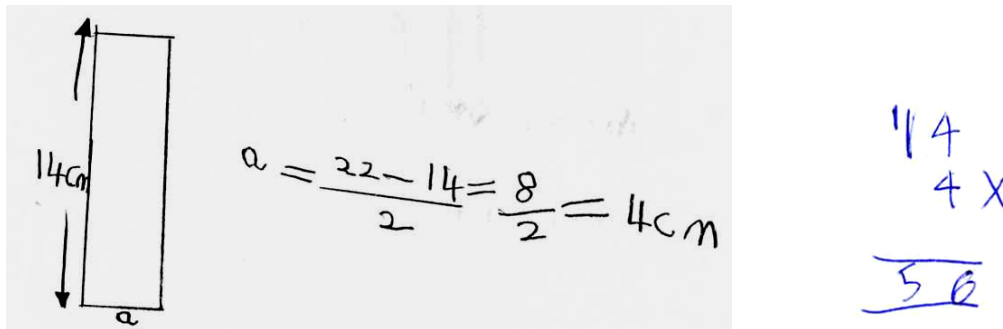 14cm
a
a = 22 - 14 / 2 = 8 / 2 = 4cm
14
4 X
56